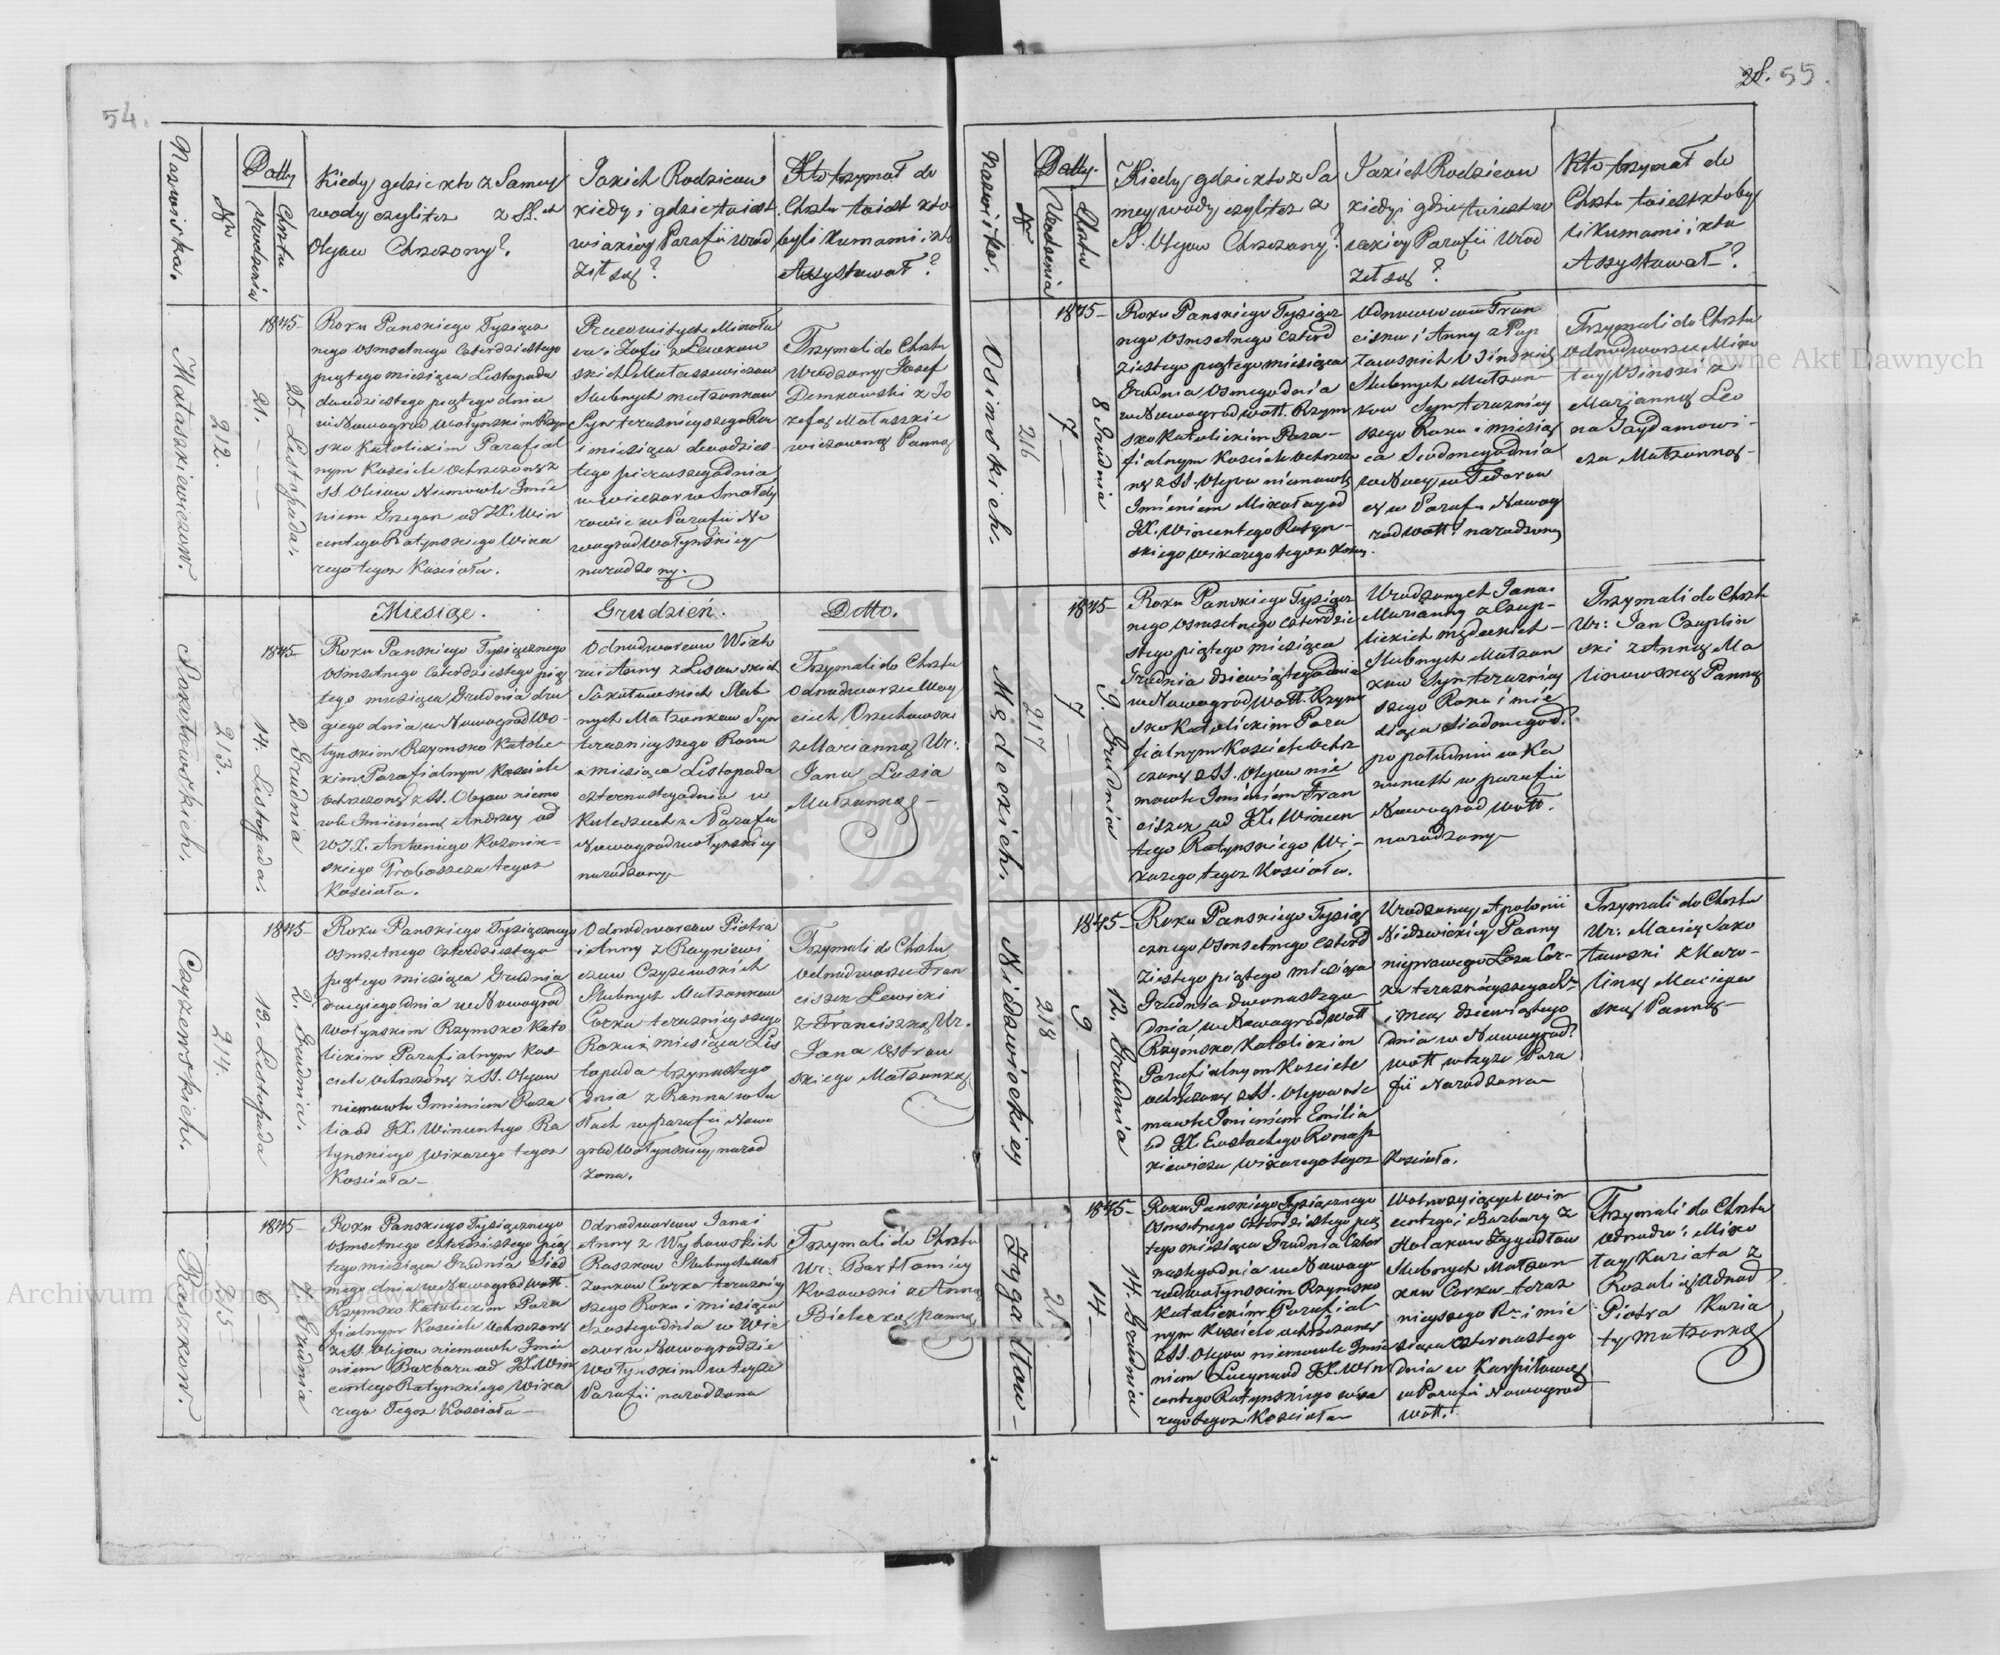 54.
Nazwiska.
Nr
Datty
Urodzenia
Chrztu
Kiedy gdzie kto z Samey
wody czyli też z SS.ch
Olejow Chrzczony?
Jakich Rodzicow
kiedy i gdzie taiest
w iakiey Parafii urod
ził się?
Kto trzymał do
Chrztu taiest kto
byli kumami i kto
Assystował?
Mataszkiewiczow.
212.
1845
21.
25. Listopada.
Roku Panskiego Tysiącz
nego osmsetnego czterdziestego
piątego miesiąca Listopada
dwudziestego piątego dnia
w Nowogrod Wołynskim Rzym
sko Katolickim Parafial
nym Kościele ochrzczony z
SS. Olejow Niemowle Jmie
niem Grzegorz od JX. Win
centego Ratynskiego Wika
rego tegoz Kościoła.
Pracowitych Mikoła
ia i Zofii z Lewkow
skich Mataszewiczow
Slubnych małżonkow
Syn teraznieyszego Ro
i miesiąca dwudzies-
tego pierwszego dnia
w wieczor w Smołdy
rowie w Parafii No
wogrod Wołynskiey
narodzony.
Trzymali do Chrztu
Urodzony Josef
Demkowski z Jo
zefą Mataszkie
wiczowną Panną
Miesiąc.
Grudzień.
Ditto.
Sokołowskich.
213.
1845
14. Listopada.
2 Grudnia
Roku Panskiego Tysiącznego
osmsetnego czterdziestego pią
tego miesiąca Grudnia dru
giego dnia w Nowogrod Wo-
łynskim Rzymsko Katolic-
kim Parafialnym Kościele
ochrzczony z SS. Olejow niemo
wle Jmieniem Andrzey od
WJX. Antoniego Kozmin-
skiego Proboszcza tegoz
Kościoła.
Odnodworcow Wikto
ra i Anny z Lisowskich
Sokołowskich Slub
nych Małżonkow Syn
teraznieyszego Roku
a miesiąca Listopada
czternastego dnia w
Kuleszach z Parafii
Nowogrodwołynskiey
narodzony
Trzymali do Chrztu
Odnodworzec Woy
ciech Orzechowski
z Marianną Ur:
Jana Lusia
Małżonką
Czyżewskich.
214.
1845
13. Listopada
2. Grudnia.
Roku Panskiego Tysiącznego
osmsetnego czterdziestego
piątego miesiąca Grudnia
drugiego dnia w Nowogrod
Wołynskim Rzymsko Kato
lickim Parafialnym Koś
ciele ochrzczony z SS. Olejow
niemowle Jmieniem Roza
lia od JX. Wincentego Ra
tynskiego wikarego tegoz
Kościoła
Odnodworcow Piotra
i Anny z Rayniewi
czow Czyżewskich
Slubnych Małżonkow
Corka teraznieyszego
Roku z miesiąca Lis
topada trzynastego
dnia z Ranna w Su
słach w parafii Nowo
grod Wołynskiey narod
zona.
Trzymali do Chrztu
Odnodworzec Fran
ciszek Lewicki
z Franciszką Ur.
Jana Ostrow
skiego Małżonką
Raszkow.
215
1845
6
7. Grudnia
Roku Panskiego Tysiącznego
osmsetnego czterdziestego pią
tego miesiąca Grudnia Siod
mego dnia w Nowogrod Woł.
Rzymsko Katolickim Para
fialnym Kościele ochrzczony
z SS. Olejow niemowle Jmie
niem Barbara od JX. Win
centego Ratynskiego Wika
rego Tegoz Kościoła
Odnodworcow Jana i
Anny z Wyhowskich
Raszkow Slubnych Mał
żonkow Corka terazniey
szego Roku i miesiąca
szostego dnia w Wie
czor w Nowogrodzie
Wołynskim w teyze
Parafii narodzona
Trzymali do Chrztu
Ur: Bartłomiey
Kozowski z Anną
Bielecką panną
28. 55.
Nazwiska.
Nr
Datty.
Urodzenia
Chrztu
Kiedy gdzie kto z Sa
mey wody czyli też z
SS. Olejow Chrzczony?
Jakich Rodzicow
kiedy i gdzie taiest w
iakiey Parafii urod
ził się?
Kto trzymał do
Chrztu taiest kto by
li kumami i kto
Assystował?
Osinskich.
216
1845
7
8 Grudnia
Roku Panskiego Tysiącz
nego osmsetnego czterd
ziestego piątego miesiąca
Grudnia osmego dnia
w Nowogrod Woł. Rzym
sko Katolickim Para-
fialnym Kościele ochrzczo
ny z SS. Olejow niemowle
Jmieniem Mikołay od
JX. Wincentego Ratyn-
skiego wikarego tegoz Kości.
Odnodworcow Fran
ciszka i Anny z Pap
Osinskich
Slubnych Małżon
kow Syn terazniey
szego Roku i miesią
ca Siodmego dnia
w Fedorow
ce w Paraf. Nowog
rod Woł. narodzony
Trzymali do Chrztu
Odnodworzec Miko
łay Osinski z
Marianną Leo
na Gaydamowi-
cza Małżonką
Mędeckich.
217
1845
7
9. Grudnia
Roku Panskiego Tysiącz
nego osmsetnego czterdzie
stego piątego miesiąca
Grudnia dziewiątego dnia
w Nowogrod Woł. Rzym
sko Katolickim Para
fialnym Kościele ochrz
czony z SS. Olejow nie
mowle Jmieniem Fran
ciszek od JX. Wincen
tego Ratynskiego Wi-
karego tegoz Kościoła.
Urodzonych Jana i
Marianny z Czap-
lickich Mędeckich
Slubnych Małżon
kow Syn terazniey
szego Roku i mie
siąca Siodmego d.
po południu w Ka
w parafii
Nowogrod Woł.
narodzony
Trzymali do Chrztu
Ur: Jan Czaplin
ski z Anną Ma
linowską Panną
Niedzwieckiey
218
1845
9
12. Grudnia
Roku Panskiego Tysią
cznego osmsetnego czterd
ziestego piątego miesiąca
Grudnia dwunastego
dnia w Nowogrod Woł
Rzymsko Katolickim
Parafialnym Kościele
ochrzczony z SS. Olejow nie
mowle Jmieniem Emilia
od JX. Eustachego Romasz
kiewicza wikarego tegoz Kościoła.
Urodzoney Apolonii
Niedzwieckiey Panny
nieprawego Łoża Cor-
ka teraznieyszego Ro.
i mca dziewiątego
dnia w Nowogrod.
Woł w teyze Para
fii Narodzona
Trzymali do Chrztu
Ur: Maciey Soko
łowski z Karo-
liną Macieyew
ską Panną
Zygadłow
1845
14
14. Grudnia
Roku Panskiego Tysiącznego
osmsetnego czterdziestego pią
tego miesiąca Grudnia czter
nastego dnia w Nowog
rodwołynskim Rzymsko
Katolickim Parafial
nym Kościele ochrzczony
z SS. Olejow niemowle Jmie
niem Lucyna od JX. Win
centego Ratynskiego wika
rego tegoz Kościoła
Wolnożyjących Win
centego i Barbary z
Polakow Zygadłow
Slubnych Małżon
kow Corka teraz
nieyszego Ro. i mie
siąca czternastego
dnia w Karpiłowce
w Parafii Nowogrod
Woł.
Trzymali do Chrztu
Odnodw: Miko
łay Kuriata z
Rozalią Odnod.
Piotra Kuria
ty Małżonką
Archiwum Główne Akt Dawnych
Archiwum Główne Akt Dawnych